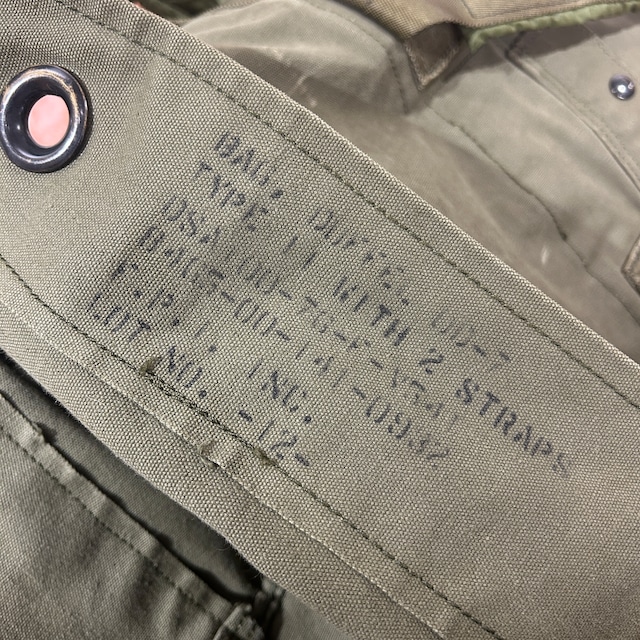 BAG, DUFFE, OD-7
TYPE II WITH 2 STRAPS
DSA100-76-
-00-141-0932
F.P.I. INC.
LOT NO. -12-